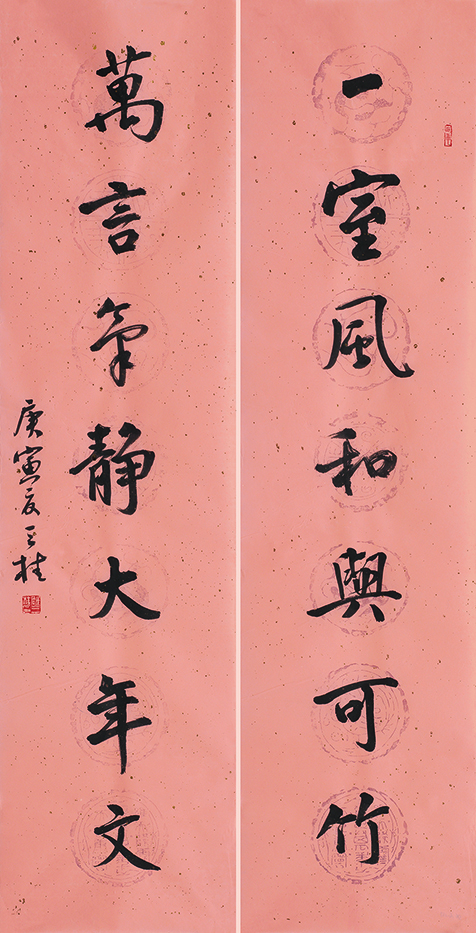 一室風和與可竹
萬言氣靜大年文
庚寅夏天桂